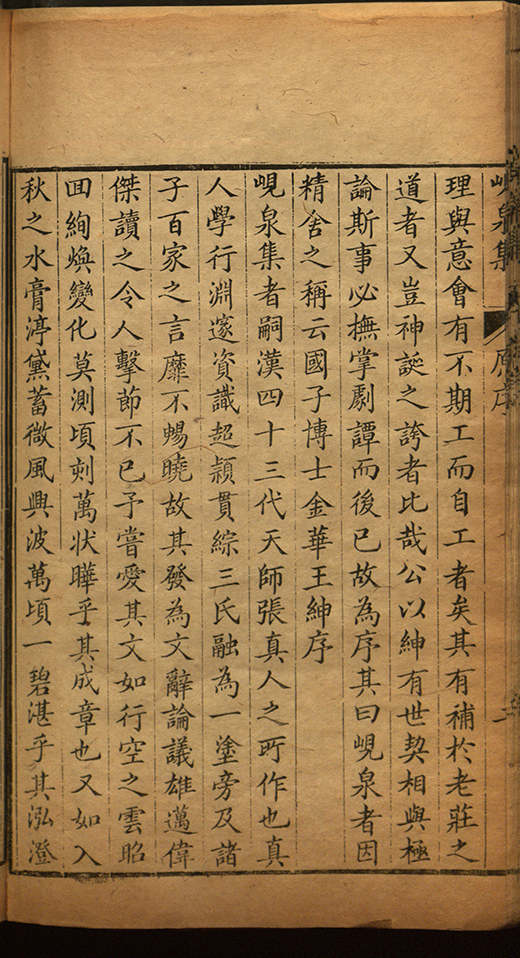 峴泉集 原序 二
理與意會有不期工而自工者矣其有補於老莊之
道者又豈神誕之誇者比哉公以紳有世契相與極
論斯事必撫掌劇譚而後已故為序其曰峴泉者因
精舍之稱云國子博士金華王紳序
峴泉集者嗣漢四十三代天師張真人之所作也真
人學行淵邃資識超穎貫綜三氏融為一塗旁及諸
子百家之言靡不暢曉故其發為文辭論議雄邁偉
傑讀之令人擊節不已予嘗愛其文如行空之雲昭
回絢煥變化莫測頃刻萬狀曄乎其成章也又如入
秋之水膏渟黛蓄微風興波萬頃一碧湛乎其泓澄